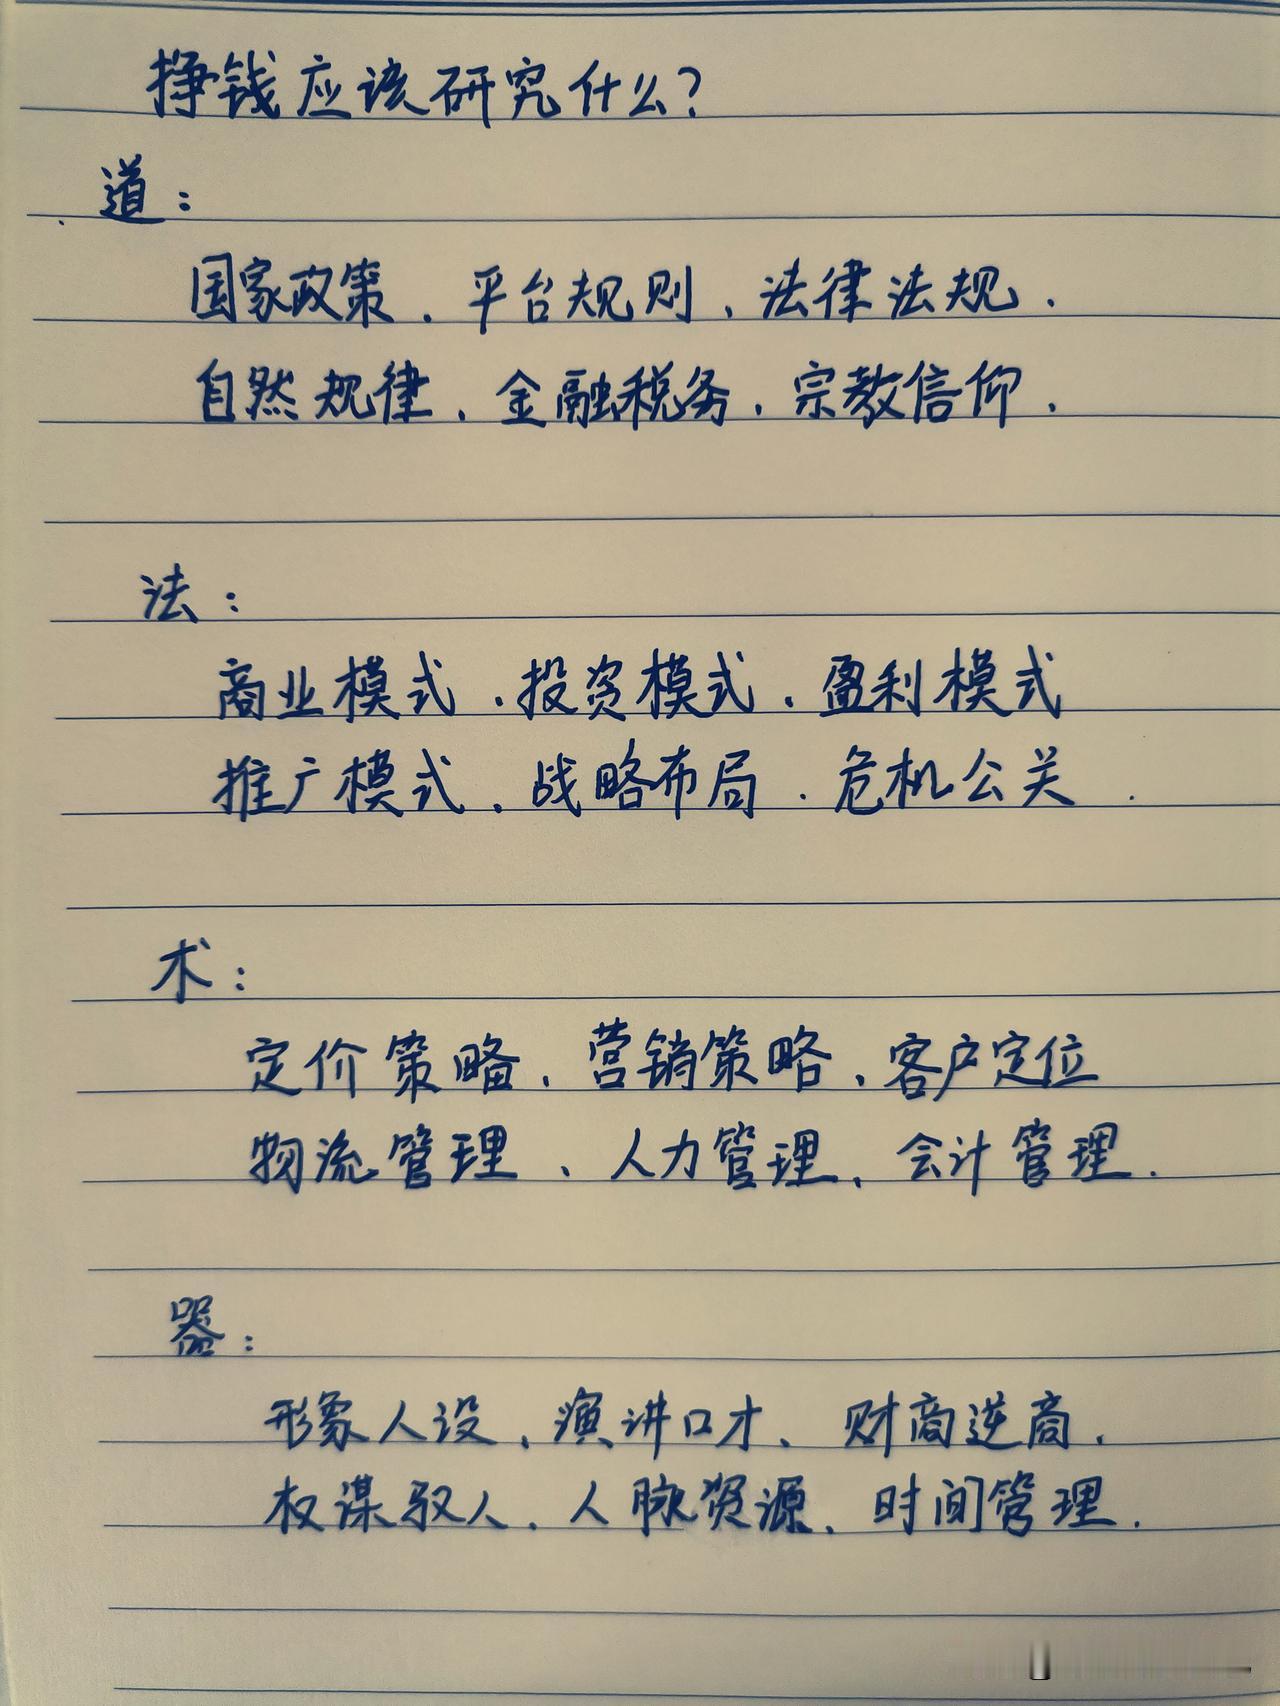 挣钱应该研究什么?
道:
国家政策、平台规则、法律法规、
自然规律、金融税务、宗教信仰、
法:
商业模式、投资模式、盈利模式
推广模式、战略布局、危机公关、
术:
定价策略、营销策略、客户定位
物流管理、人力管理、会计管理.
器:
形象人设、演讲口才、财商逆商、
权谋驭人、人脉资源、时间管理.